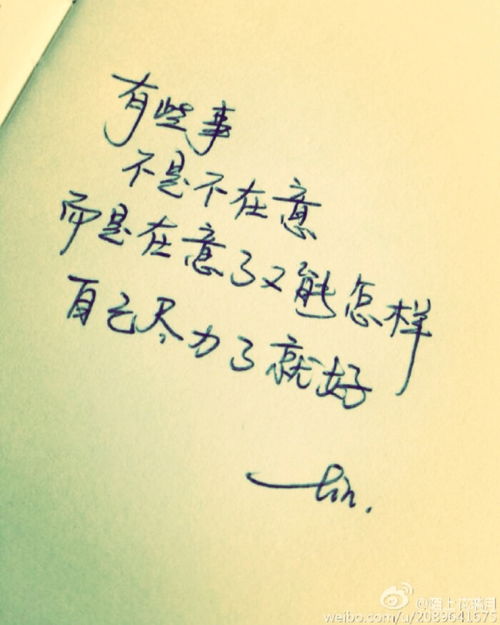 有些事
不是不在意
而是在意了又能怎样
自己尽力了就好
—lin.
weibo.com/u/2089641675